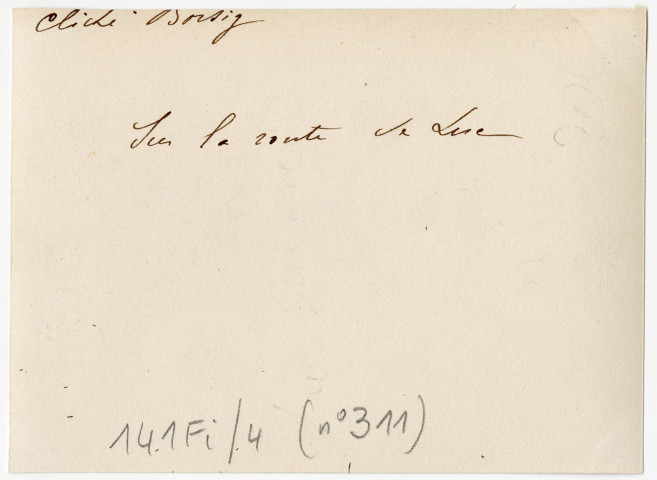 Cliché Borsig
Sur la route de Luc
141Fi/4 (n°311)